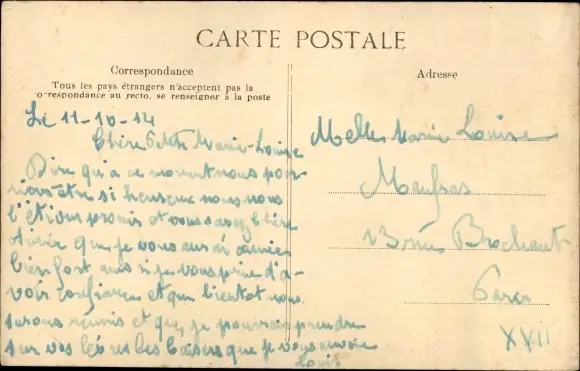 CARTE POSTALE
Correspondance
Tous les pays étrangers n'acceptent pas la
correspondance au recto, se renseigner à la poste
Adresse
Le 11-10-14
Chère Petite Marie-Louise
Dire qu'a ce moment nous pou-
rions être si heureux nous nous
l'étions promis et vous savez chère
que je vous
bien fort mais je vous prie d'a-
voir confiance et que bientot nous
serons réunis et que je pourrai prendre
sur vos lèvres les baisers que je vous envoie
Louis
Melle Marie Louise
Maufras
13 rue Brochant
Paris
XVII